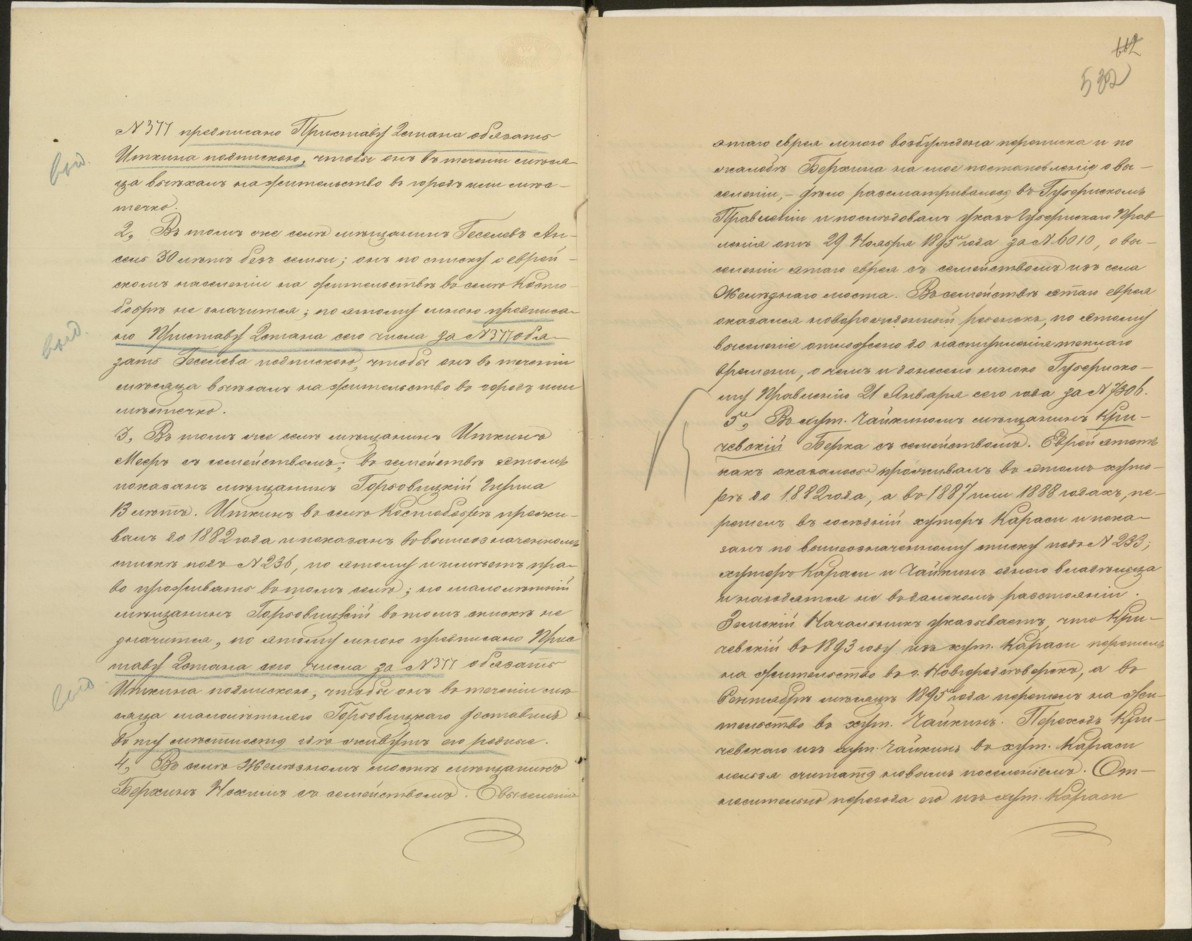 № 377 предписано Приставу 2 стана обязать
Иткина подпискою, чтобы он в течении меся-
ца выехал на жительство в город или мес-
течко.
2, В том же селе мещанин Геселев Ан-
сель 30 лет без семьи; он по списку о еврей-
ском населении на жительстве в селе Косто-
бобре не значится; по этому мною предписа-
но Приставу 2 стана сего числа за № 377 обя-
зать Геселева подпискою, чтобы он в течении
месяца выехал на жительство в город или
местечко.
3, В том же селе мещанин Иткин
Меер с семейством; в семействе этом
показан мещанин Горовицкий
13 лет. Иткин в селе Костобобре прожи-
вал до 1882 года и показан в вышеозначенном
списке под № 236, по этому и имеет пра-
во проживать в том селе; но малолетний
мещанин Горовицкий в том списке не
значится, по этому мною предписано Прис-
таву 2 стана сего числа за № 377 обязать
Иткина подпискою, чтобы он в течении ме-
сяца малолетнего Горовицкого доставил
в ту местность где живут его родные.
4, В селе Железном мосте мещанин
Берхин Нохим с семейством. О выселении
532
этого еврея мною возбуждена переписка и по
жалобе Берхина на мое постановление о вы-
селении, – дело рассматривалось в Губернском
Правлении и последовал указ Губернского Прав-
ления от 29 Ноября 1895 года за № 6010, о вы-
селении этого еврея с семейством из села
Железного моста. В семействе этого еврея
оказался новорожденный ребенок, по этому
выселение отложено до наступления теплого
времени, о чем и донесено мною Губернско-
му Правлению 21 Января сего года за № 7306.
5, В хут. Чайкином мещанин Кри-
чевский Берка с семейством. Еврей этот
как оказалось проживал в этом хуто-
ре до 1882 года, а в 1887 или 1888 годах, пе-
решел в соседний хутор Караси и пока-
зан по вышеозначенному списку под № 233;
хутора Караси и Чайкин одного владельца
и находятся не в далеком расстоянии.
Земский Начальник указывает, что Кри-
чевский в 1893 году из хут. Караси перешел
на жительство в г. Новгородсеверск, а в
Сентябре месяце 1895 года перешел на жи-
тельство в хут. Чайкин. Переход Кри-
чевского из хут. Чайкина в хут. Караси
нельзя считать новым поселением. От-
носительно перехода его из хут. Караси